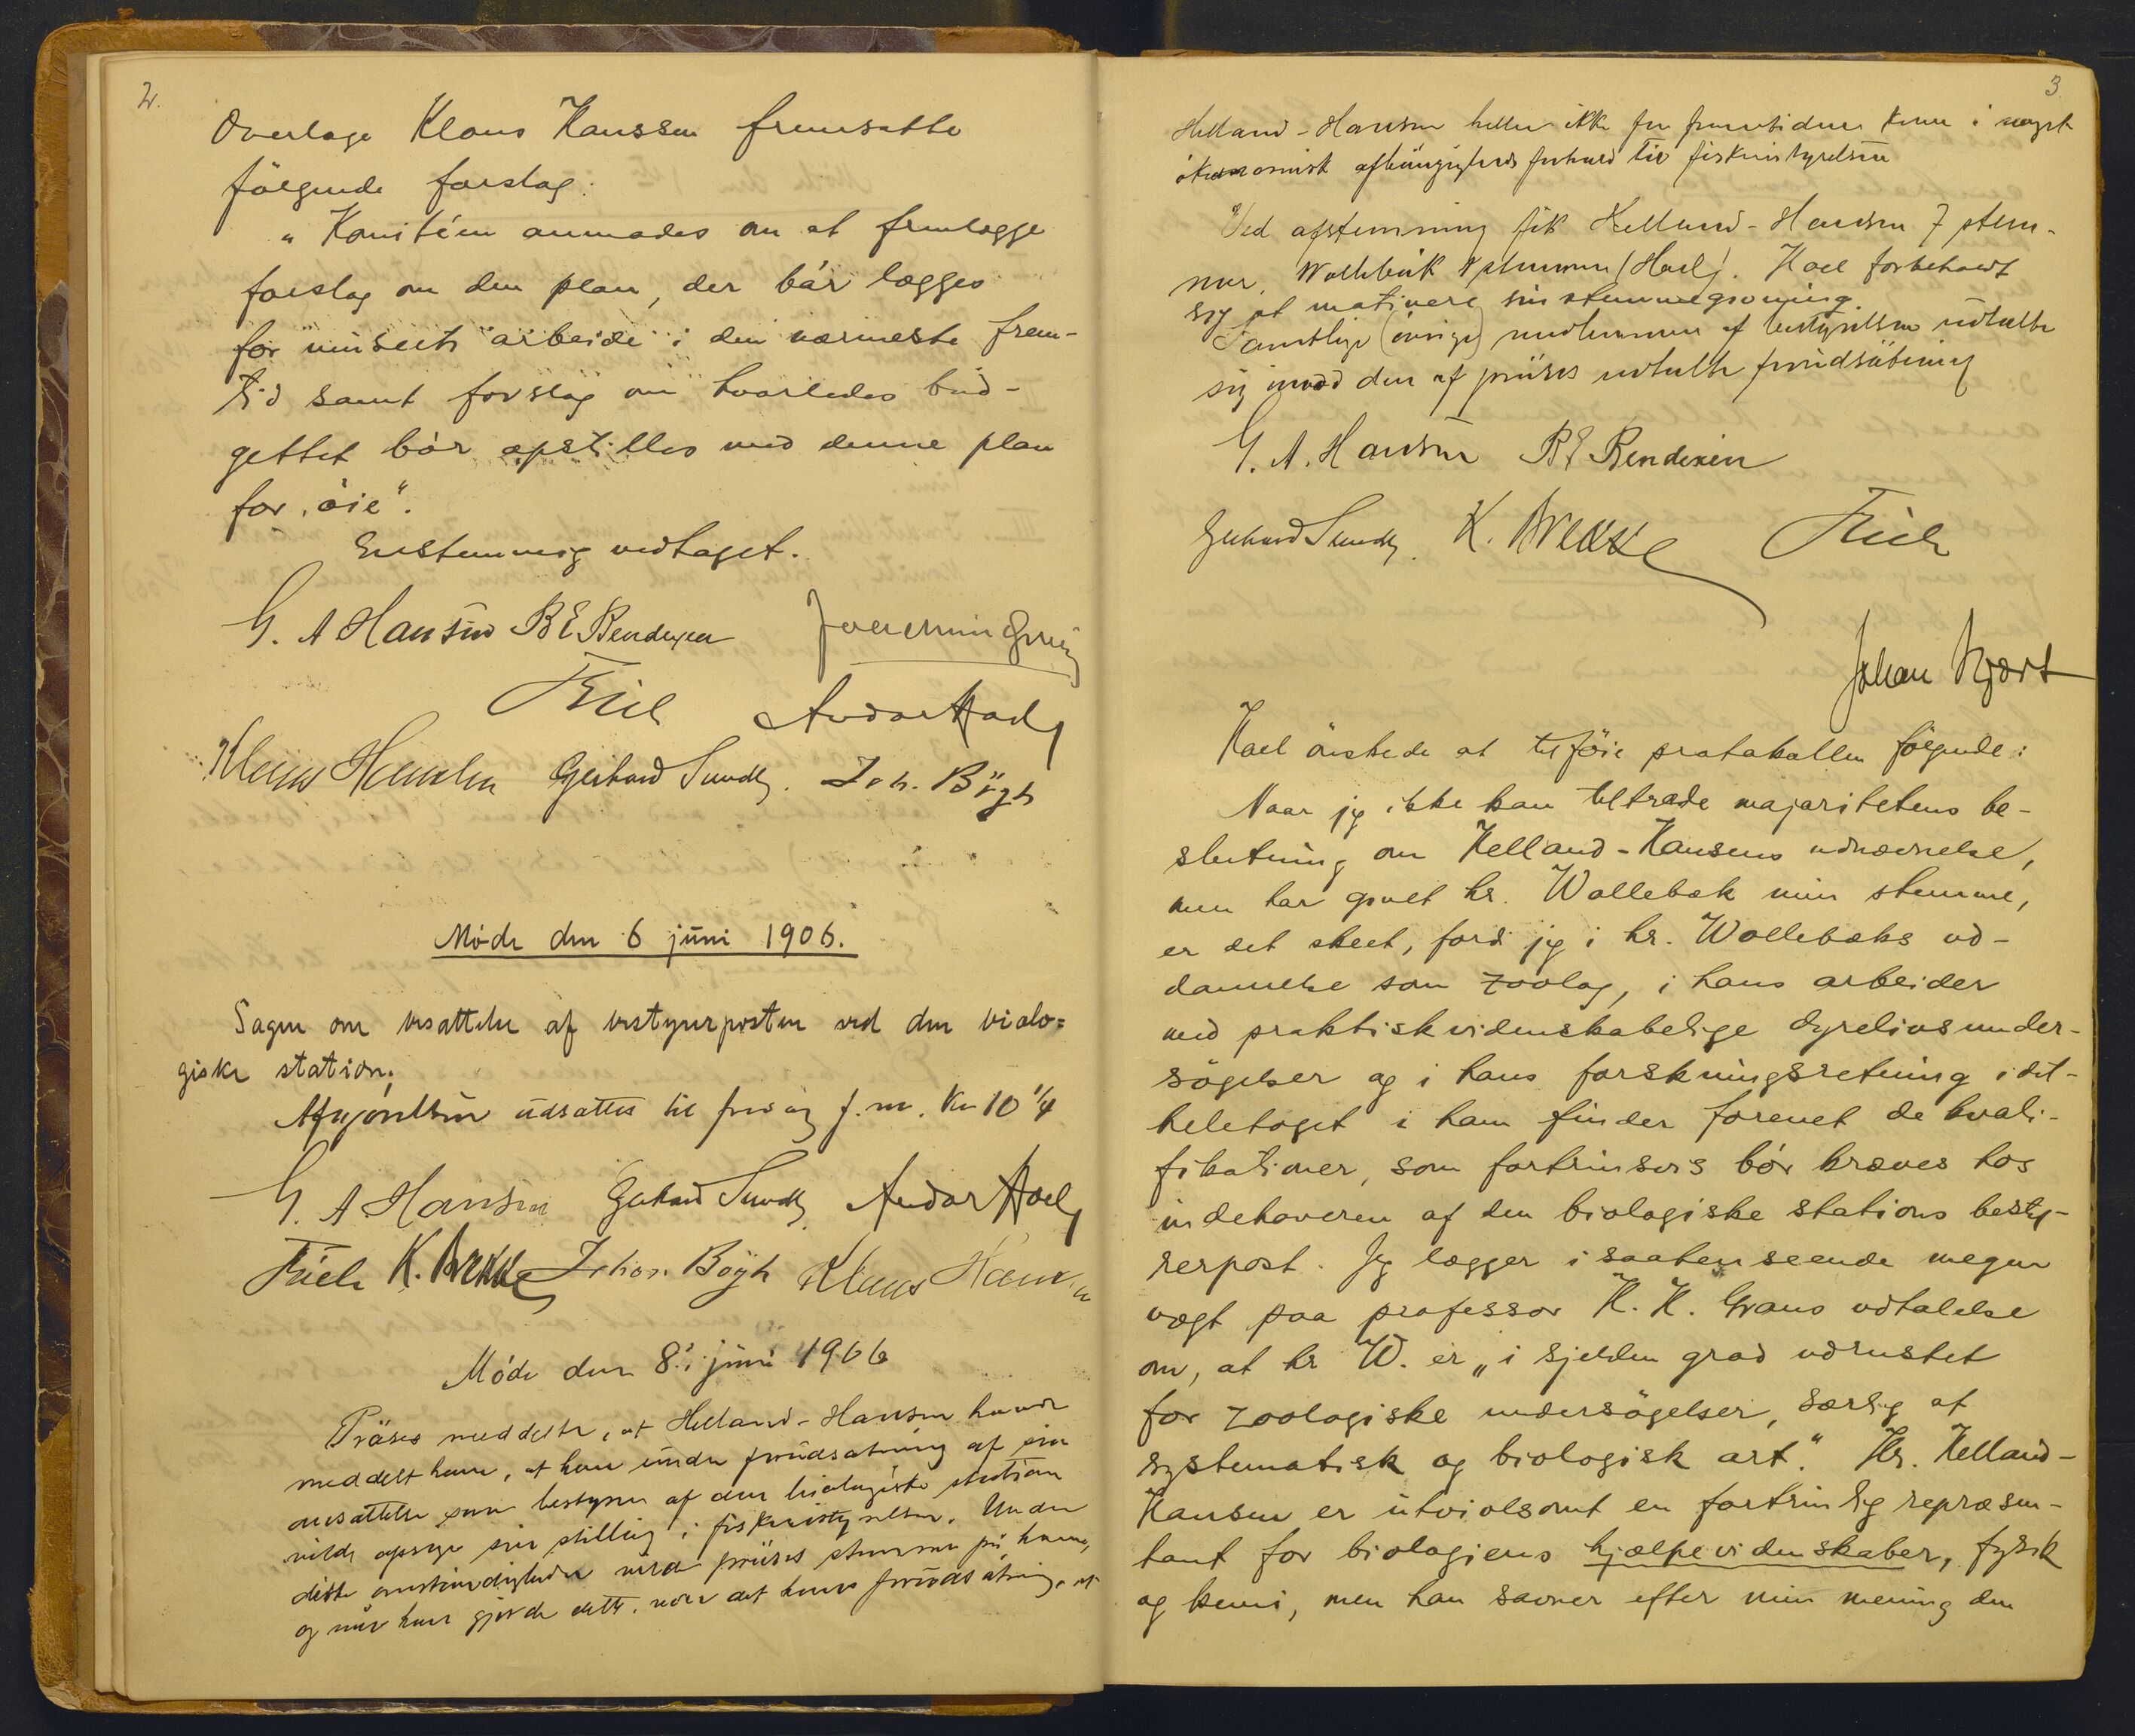 2.
Overlæge Klaus Hanssen fremsatte
følgende forslag:
"Komitéen anmodes om at fremlægge
forslag om den plan, der bør lægges
for museets arbeide i den nærmeste frem-
tid samt forslag om hvorledes bud-
gettet bør opstilles med denne plan
for øie".
Enstemmig vedtaget.
G. A Hansen B E Bendixen Joachim Grieg
Friele Andor Hoel
Klaus Hanssen Gerhard Sundt. Joh. Bögh
Møde den 6 juni 1906.
Sagen om besættelse af bestyrerposten ved den biolo=
giske station.
Afgjørelsen udsattes til fredag f.m. Kl 10 1/4
G. A Hansen Gerhard Sundt. Andor Hoel
Friele K. Brekke Johan Bögh Klaus Hanssen
Møde den 8: juni 1906
Präses meddelte, at Helland-Hansen havde
meddelt ham, at han under forudsætning af sin
ansættelse som bestyrer af den biologiske station
vilde opsige sin stilling i fiskeristyrelsen. Under
disse omstændigheder vilde präses stemme på ham,
og når han gjorde dette, var det hans forudsätning, at
3.
Helland-Hansen heller ikke for fremtiden kom i noget
økonomisk afhängigheds forhold til fiskeristyrelsen
Ved afstemning fik Helland-Hansen 7 stem-
mer, Wollebæk 1 stemme (Hoel). Hoel forbeholdt
sig at motivere sin stemmegivning.
Samtlige (øvrige) medlemmer af bestyrelsen udtalte
sig imod den af präses udtalte forudsätning
G. A. Hansen B E Bendixen
Gerhard Sundt. K. Brekke Friele
Johan Hjort
Hoel ønskede at tilføie protokollen følgende:
Naar jeg ikke kan tiltræde majoritetens be-
slutning om Helland-Hansens udnævnelse,
men har givet hr. Wollebæk min stemme,
er det skeet, fordi jeg i hr. Wollebæks ud-
dannelse som zoolog, i hans arbeider
med praktisk videnskabelige dyrelivsunder-
søgelser og i hans forskningsretning i det-
heletaget i ham finder forenet de kvali-
fikationer, som fortrinsvis bør kræves hos
indehaveren af den biologiske stations besty-
rerpost. Jeg lægger i saa henseende megen
vægt paa professor H. H. Grans udtalelse
om, at hr W. er "i sjelden grad udrustet
for zoologiske undersøgelser, særlig af
systematisk og biologisk art." Hr. Helland-
Hansen er utvivlsomt en fortrinlig repræsen-
tant for biologiens hjælpevidenskaber, fysik
og kemi, men han savner efter min mening den